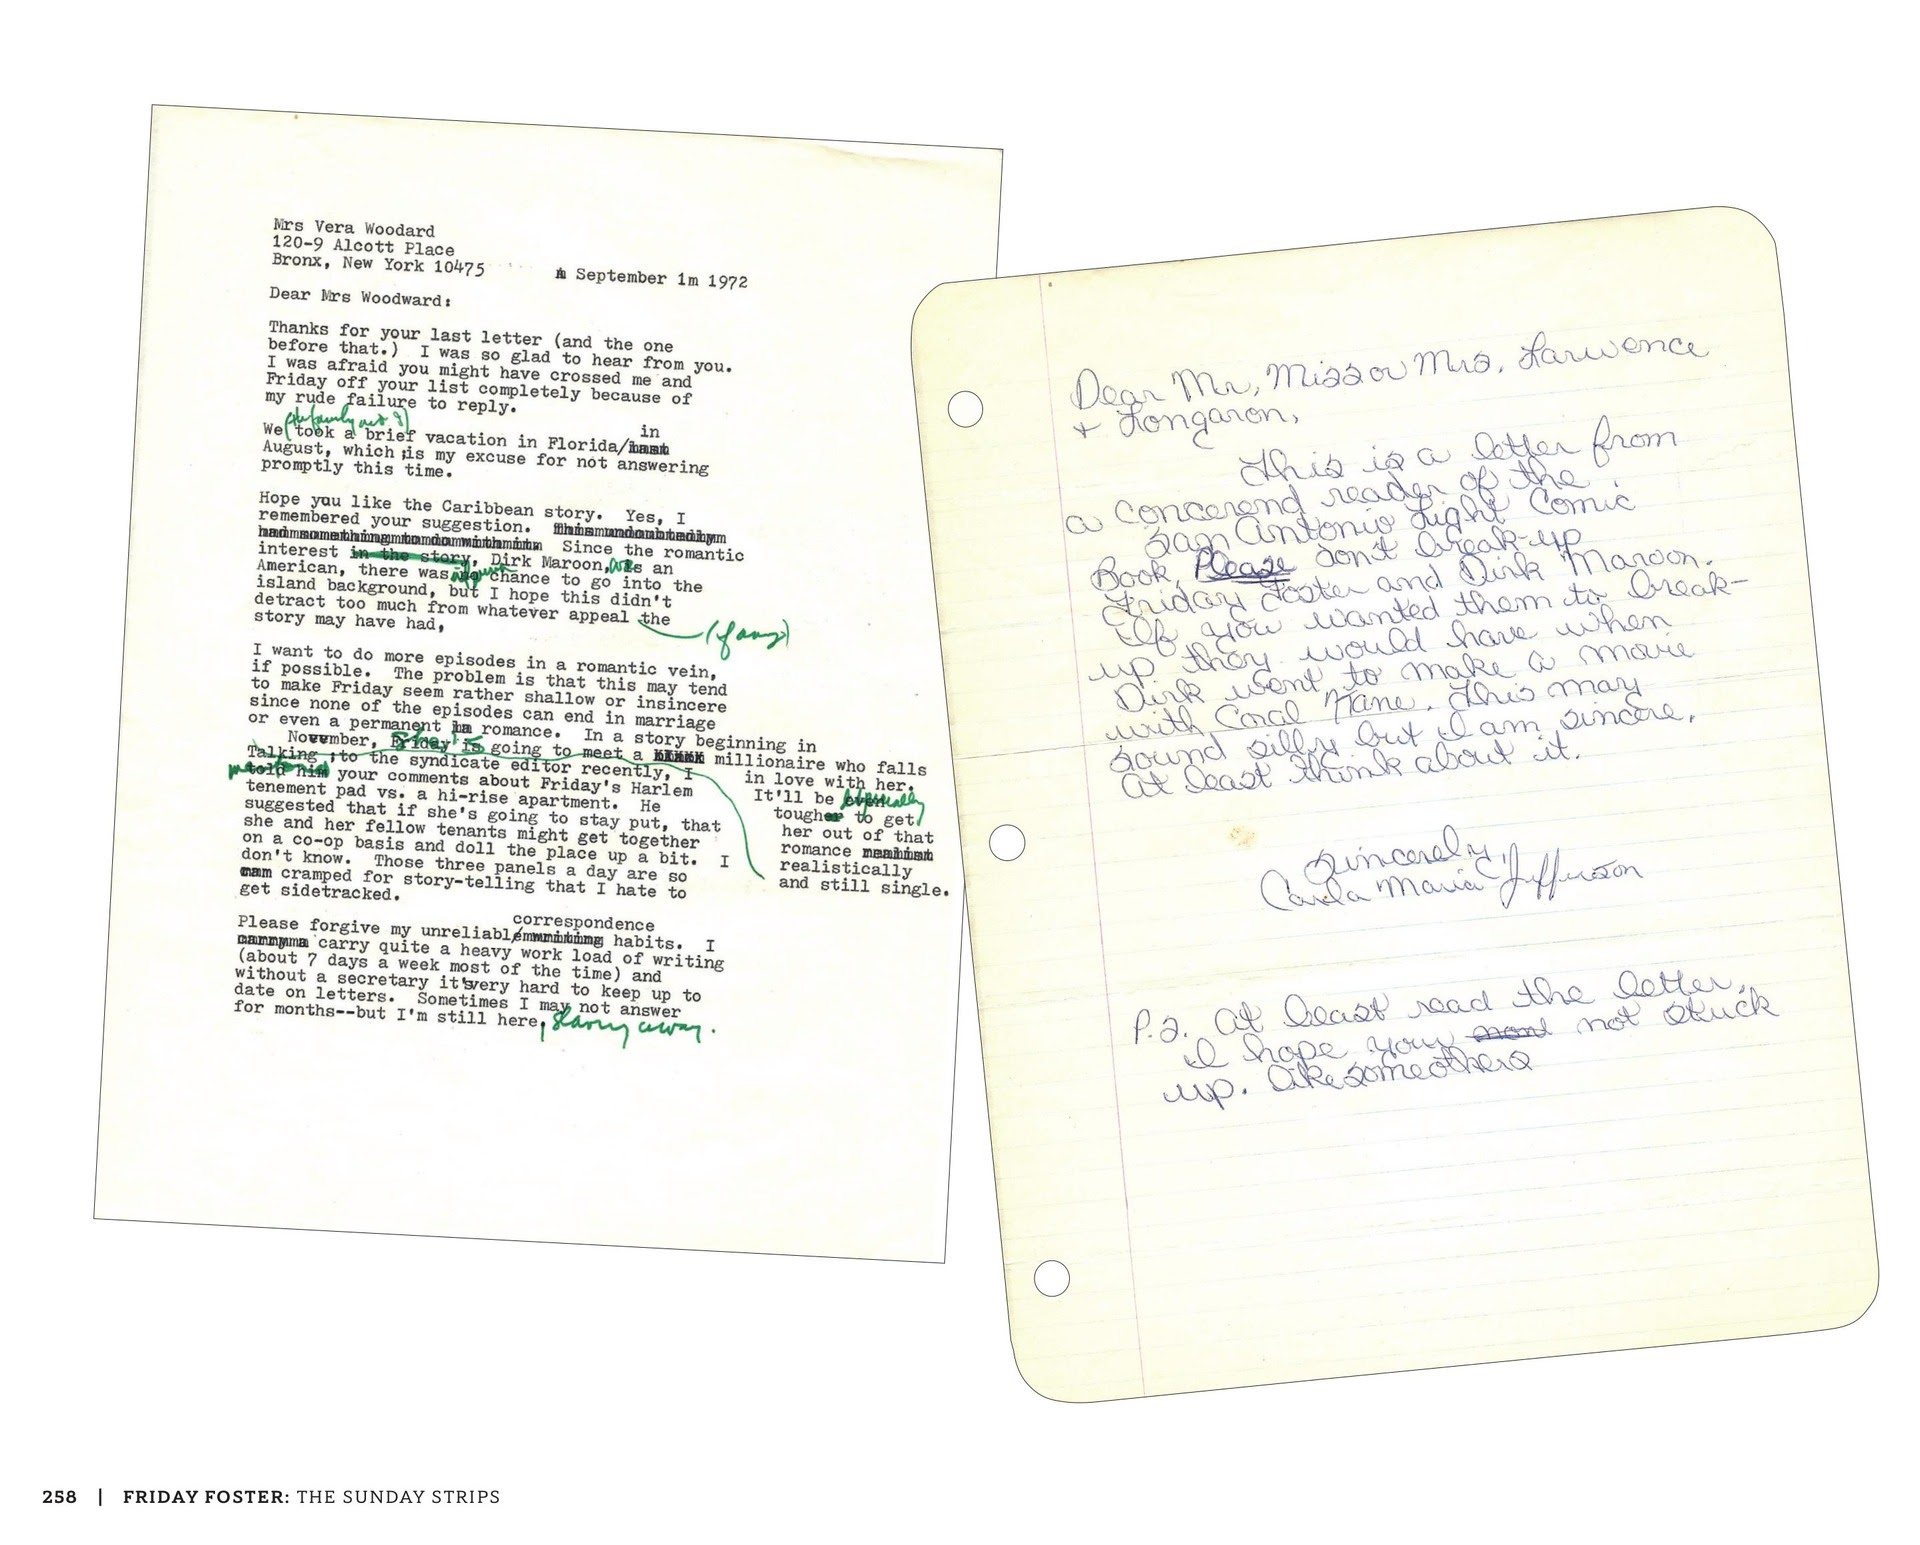 Mrs Vera Woodard
120-9 Alcott Place
Bronx, New York 10475
September 1m 1972
Dear Mrs Woodward:
Thanks for your last letter (and the one
before that.) I was so glad to hear from you.
I was afraid you might have crossed me and
Friday off your list completely because of
my rude failure to reply.
(the family and I)
in
We took a brief vacation in Florida/
August, which is my excuse for not answering
promptly this time.
Hope you like the Caribbean story. Yes, I
remembered your suggestion. This undoubtedly
had something to do with it. Since the romantic
interest in the story, Dirk Maroon, was an
American, there was no chance to go into the
island background, but I hope this didn't
detract too much from whatever appeal the
story may have had,
(if any)
I want to do more episodes in a romantic vein,
if possible. The problem is that this may tend
to make Friday seem rather shallow or insincere
since none of the episodes can end in marriage
or even a permanent romance. In a story beginning in
November, Friday is going to meet a millionaire who falls
she is
in love with her.
It'll be even especially
tougher to get
her out of that
romance
realistically
and still single.
Talking to the syndicate editor recently, I
mentioned
told him your comments about Friday's Harlem
tenement pad vs. a hi-rise apartment. He
suggested that if she's going to stay put, that
she and her fellow tenants might get together
on a co-op basis and doll the place up a bit. I
don't know. Those three panels a day are so
cramped for story-telling that I hate to
get sidetracked.
correspondence
Please forgive my unreliable/writing habits. I
carry quite a heavy work load of writing
(about 7 days a week most of the time) and
without a secretary it's very hard to keep up to
date on letters. Sometimes I may not answer
for months--but I'm still here, slaving away.
Dear Mr, Miss or Mrs, Larwence
+ Longaron,
This is a letter from
a concerend reader of the
San Antonio Light Comic
Book. Please don't break-up
Friday Foster and Dirk Maroon.
If you wanted them to break-
up they would have when
Dirk went to make a movie
with Coral Kane. This may
sound silly but I am sincere.
At least think about it.
Sincerely,
Carla Maria Jefferson
P.S. At least read the letter.
I hope your not stuck
up. like some others
258 | FRIDAY FOSTER: THE SUNDAY STRIPS